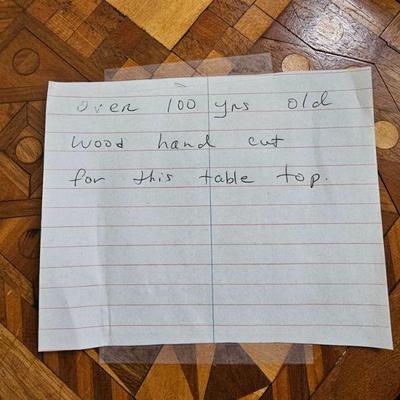 over 100 yrs old
wood hand cut
for this table top.